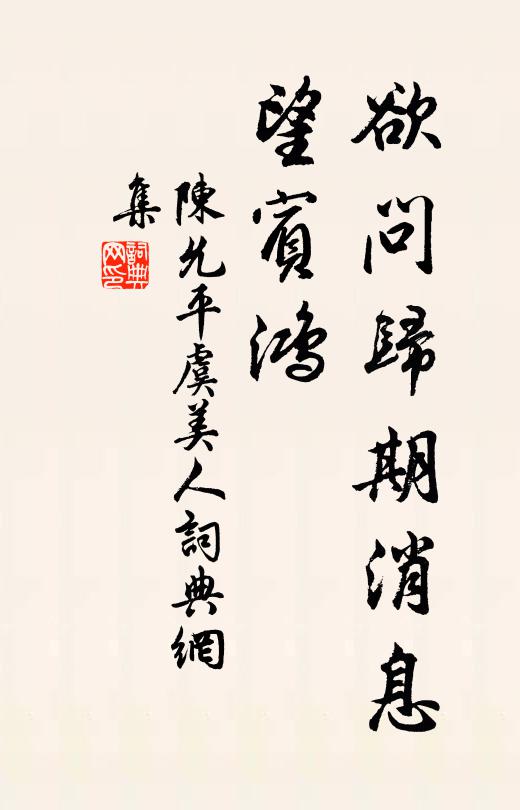 欲問歸期消息
望賓鴻
陳允平虞美人詞典網
集
詞典網印